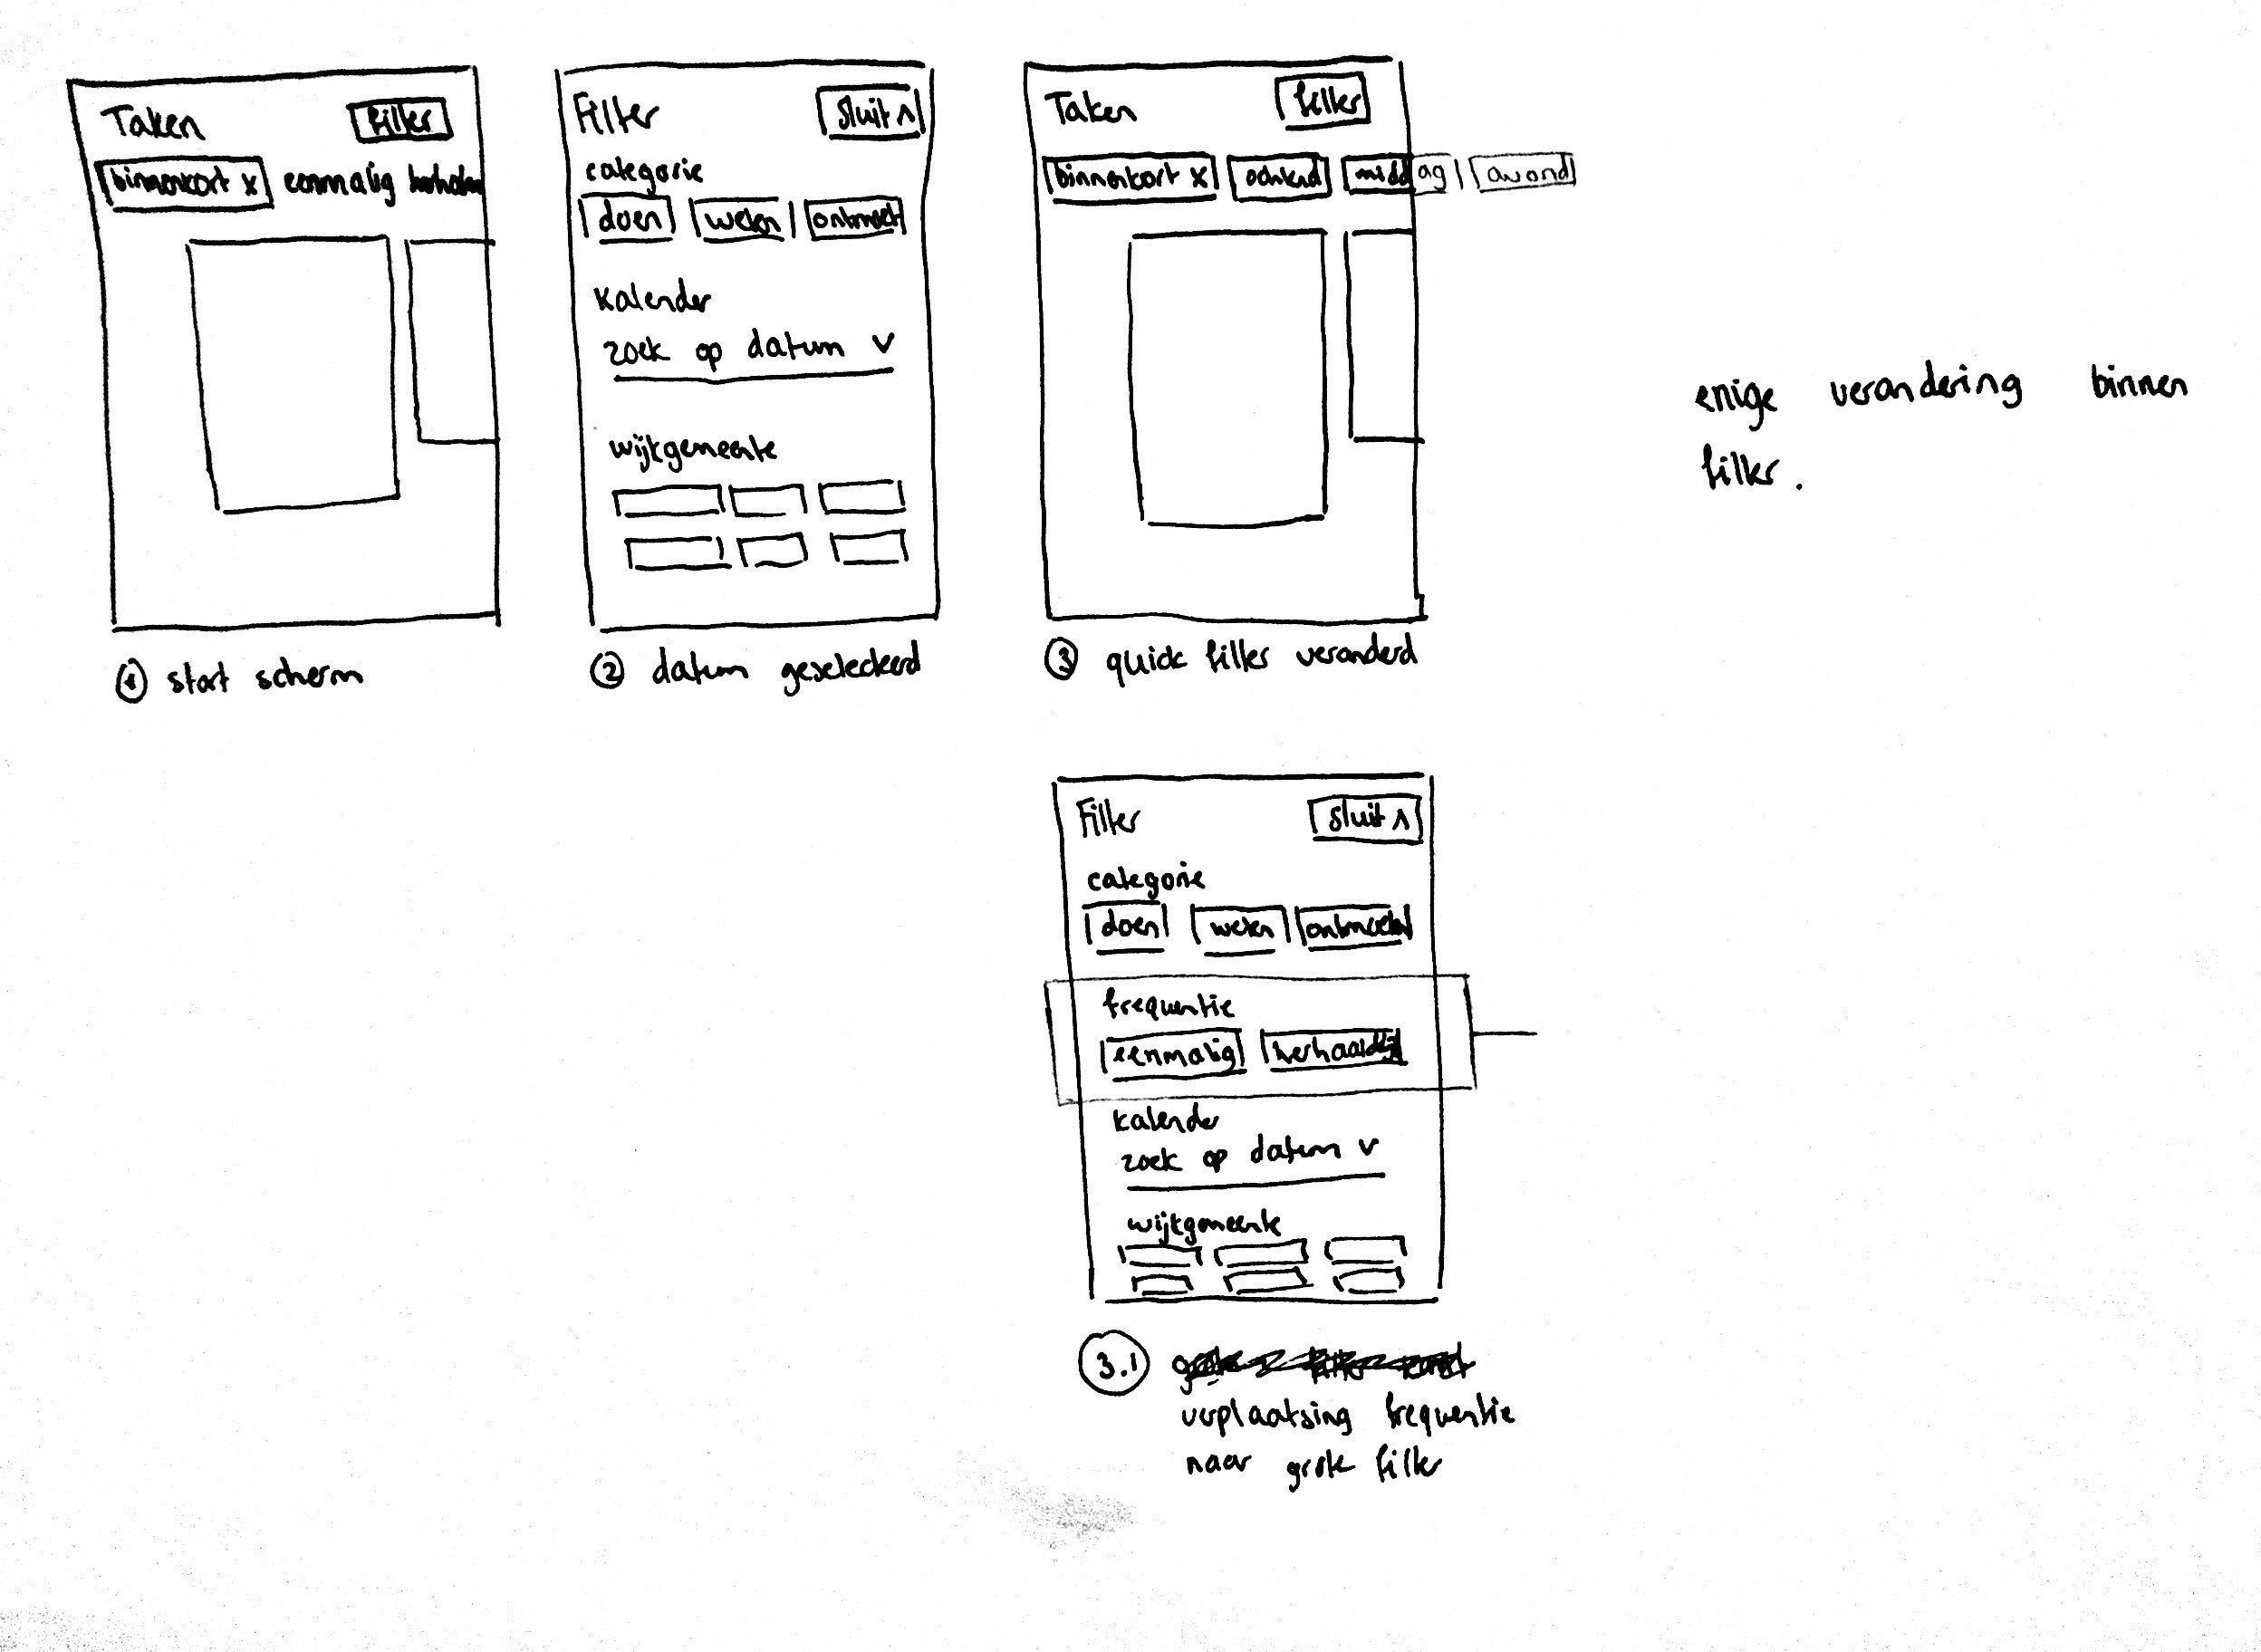 Taken filter
binnenkort x eenmalig
① start scherm
Filter sluit ^
categorie
doen weten ontmoet
Kalender
zoek op datum v
wijkgemeente
② datum geselecteerd
Taken filter
binnenkort x ochtend middag avond
③ quick filter veranderd
enige verandering binnen
filter.
Filter sluit ^
categorie
doen weten ontmoeten
frequentie
eenmalig
kalender
zoek op datum v
wijkgemeente
3.1
verplaatsing frequentie
naar grote filter